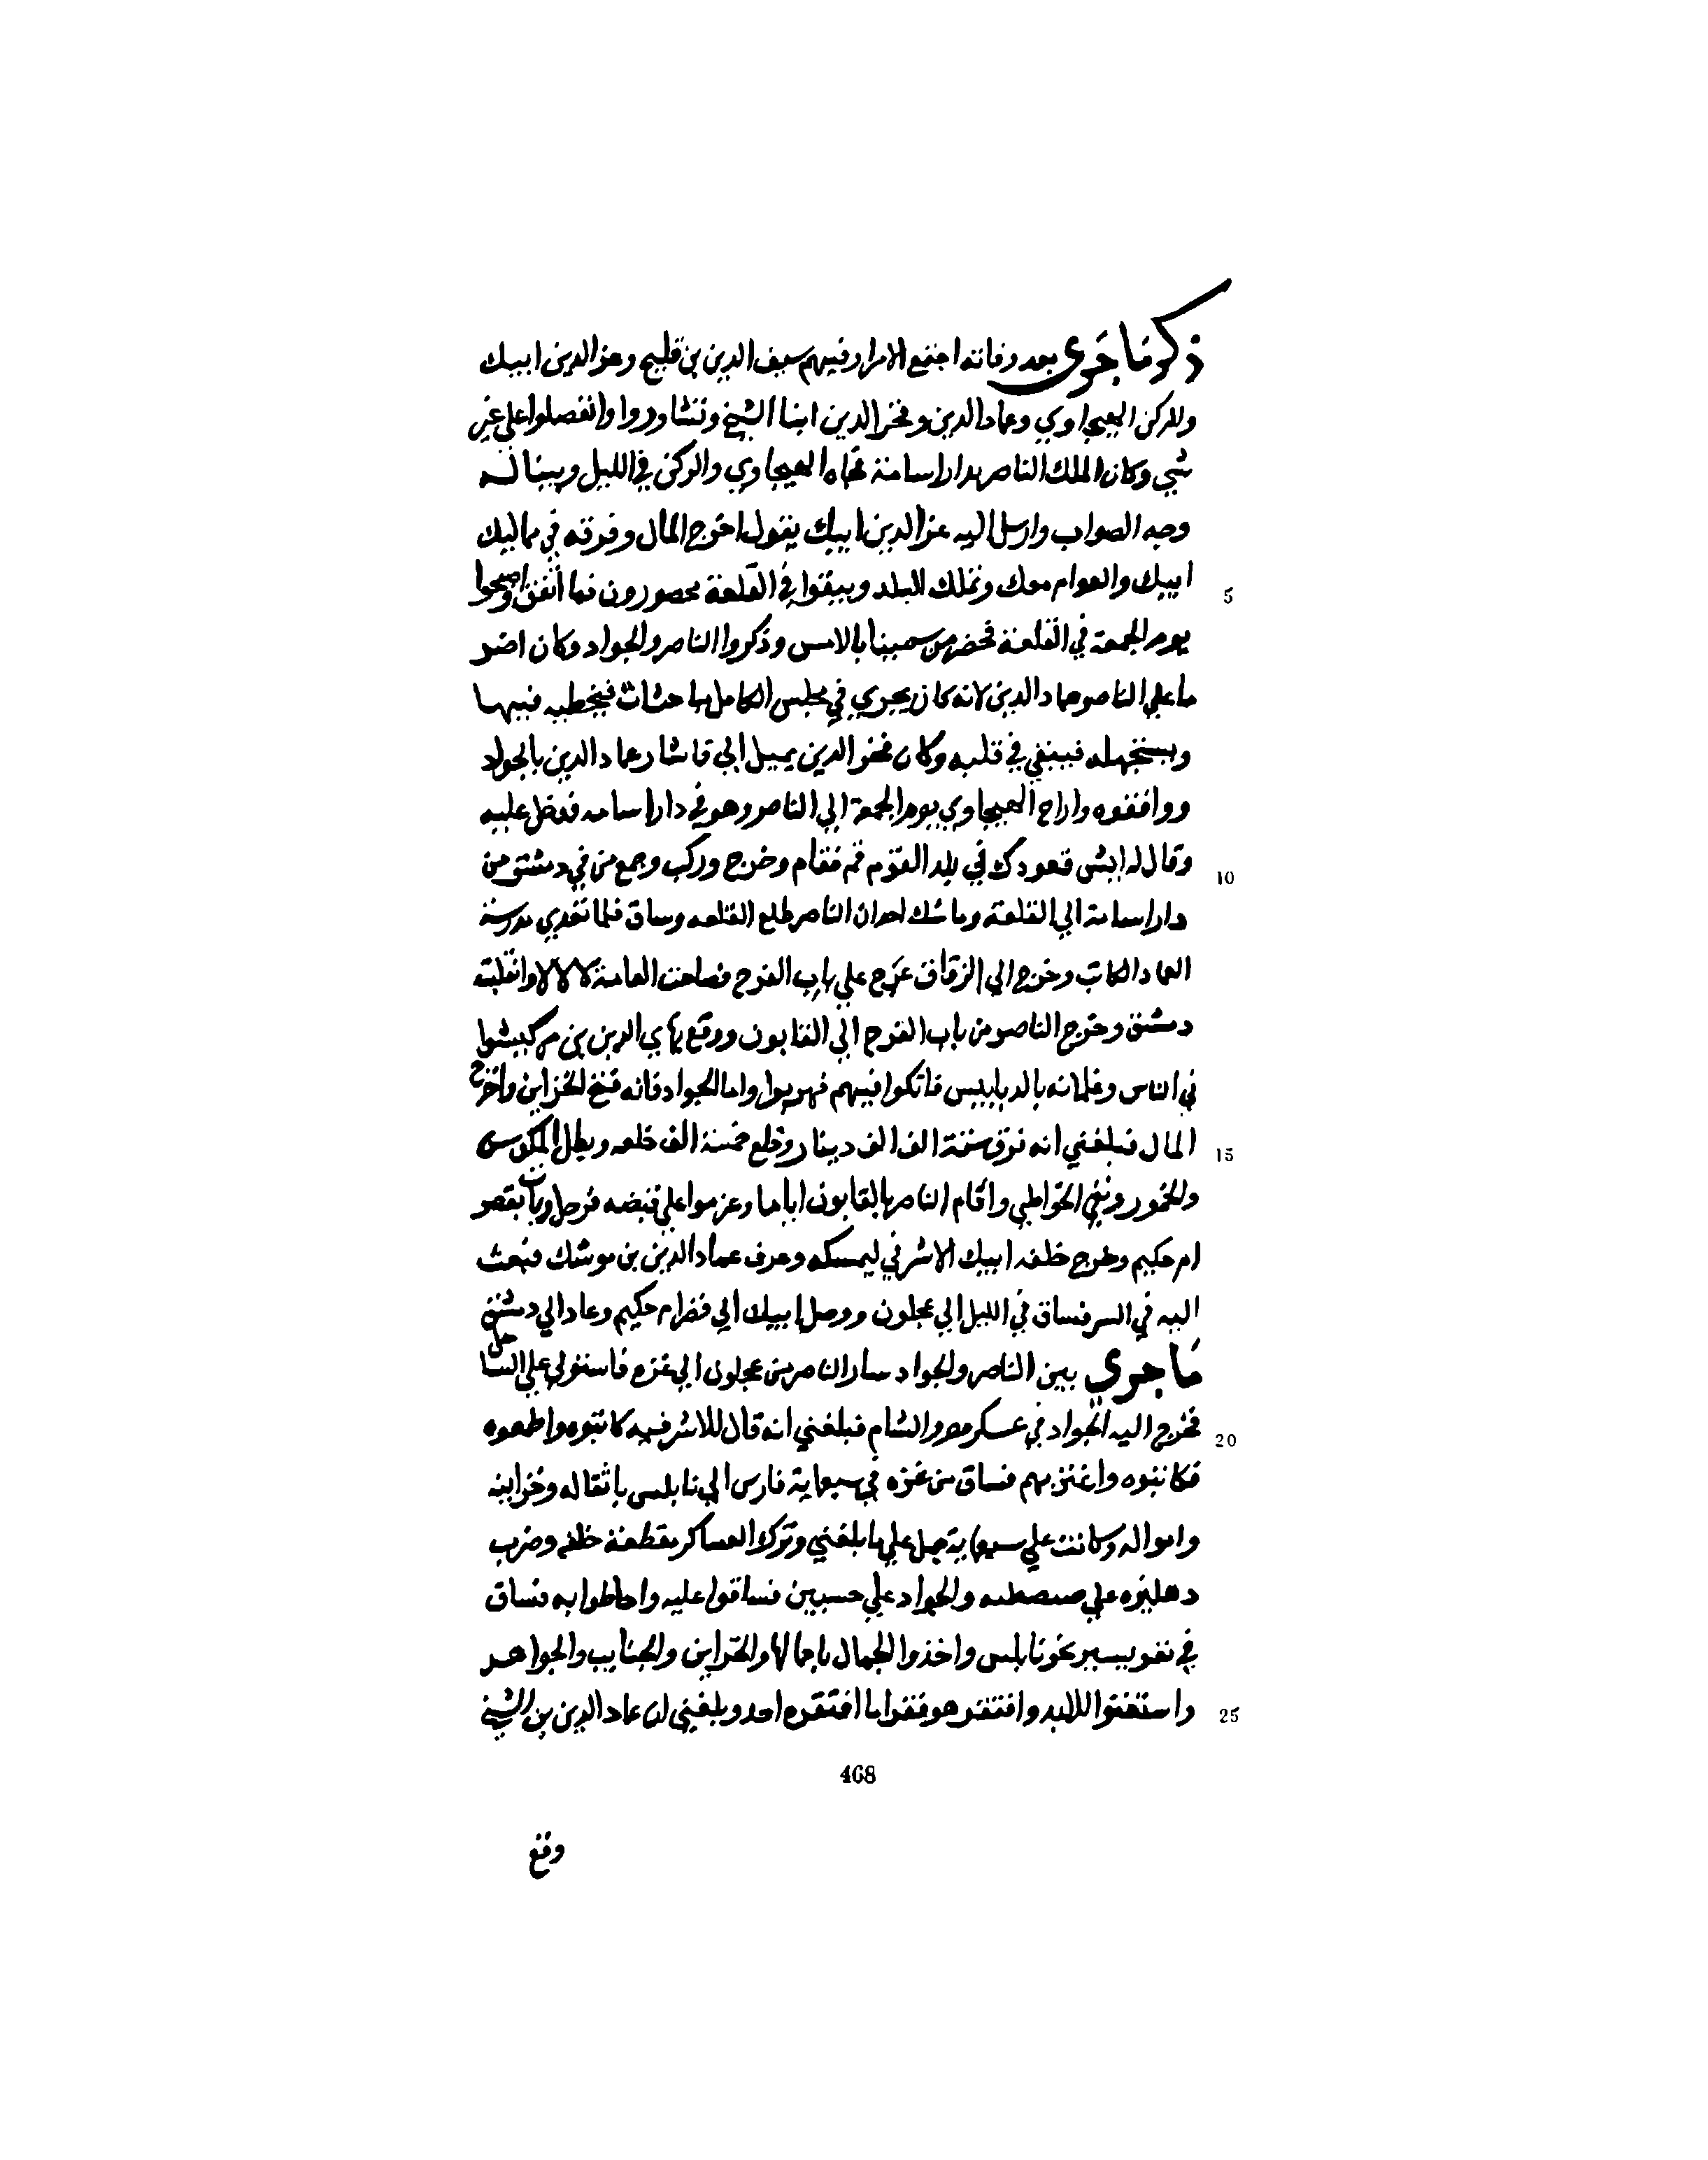 ذكر ما جرى بعد وفاته اجتمع الامرا وفيهم سيف الدين بن قليج وعز الدين ايبك
والركن الهيجاوي وعماد الدين وفخر الدين ابنا الشيخ وتشاوروا وانفصلوا على غير
شي وكان الملك الناصر بدار اسامة فجاه الهيجاوي والركن في الليل وبينا له
وجه الصواب وارسل اليه عز الدين ايبك يقول اخرج المال وفرقه في مماليك
5 ابيك والعوام معك وتملك البلد ويبقوا في القلعة محصورون فما اتفق واصبحوا
يوم الجمعة في القلعة فحضر من سمينا بالامس وذكروا الناصر والجواد وكان اضر
ما على الناصر عماد الدين لانه كان يجري في مجلس الكامل مباحثات فيخطيه فيها
ويستجهله فيبقى في قلبه وكان فخر الدين يميل الى فاشار عماد الدين بالجواد
ووافقوه واراح الهيجاوي يوم الجمعة الي الناصر وهو في دار اسامه فدخل عليه
10 وقال له ايش قعودك في بلد القوم قم فقام وخرج وركب وجمع من في دمشق من
دار اسامة الي القلعة وما شك احد ان الناصر طلع القلعه وساق فلما تعدي مدرسة
العماد الكاتب وخرج الي الزقاق عرج علي باب الفرج فصاحت العامة لا لا لا وانقلبت
دمشق وخرج الناصر من باب الفرج الي القابون ووقع بهاي الدين بن مركيشوا
في الناس وغلمانه بالدبابيس فانكوا فيهم فهربوا واما الجواد فانه فتح الخزاين واخرج
15 المال فبلغني انه فرق ستة الف الف دينار وخلع خمسة الف خلعه وبطل المكوس
والخمور ونفي الخواطي واقام الناصر بالقابون اياما وعزموا علي قبضه فرحل وبات بقصر
ام حكيم وخرج خلفه ايبك الاشرفي ليمسكه وعرف عماد الدين بن موشك فبعث
اليه في السر فساق في الليل الي عجلون ووصل ايبك الي قصر ام حكيم وعاد الي دمشق
ما جري بين الناصر والجواد سار الناصر من عجلون الي غزه فاستولي علي الساحل
20 فخرج اليه الجواد في عسكر مصر والشام فبلغني انه قال للاشرفيه كاتبوه واطمعوه
فكاتبوه واغتر بهم فساق من غزه في سبعماية فارس الي نابلس باثقاله وخزاينه
وامواله وكانت علي سبعماية جمل علي ما بلغني وترك العساكر مقطعة خلفه وضرب
دهليزه علي والجواد علي فساقوا عليه واحاطوا به فساق
في نفر يسير نحو نابلس واخذوا الجمال باحمالها والخزاين والجنايب والجواهر
25 واستغنوا للابد وافتقر هو فقرا ما افتقره احد وبلغني ان عماد الدين بن الشيخ
468
وقع